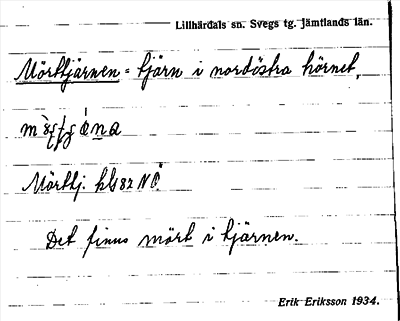 Lillhärdals sn. Svegs tg. Jämtlands län.
Mörttjärnen = tjärn i nordöstra hörnet,
Mörttj. hbl 82 NÖ
Det finns mört i tjärnen.
Erik Eriksson 1934.